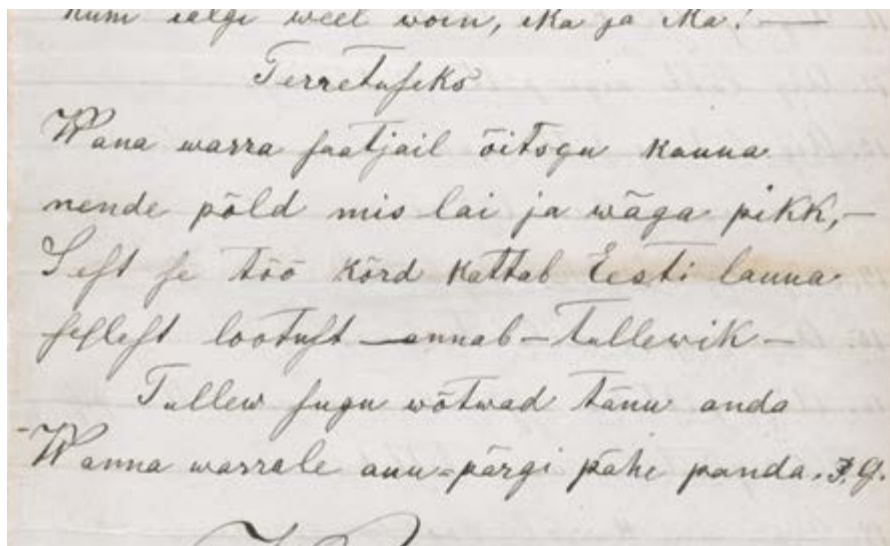 kum ialgi weel woin, ika ja ika! —
Terretuseks
Wana warra saatjail õitsgu kauna
nende põld mis lai ja wäga pikk,—
Sest se töö kõrd kattab Eesti launa
sellest lootust — annab — tullewik —
Tullew sugu wõtwad tänu anda
Wanna warrale auu-pärgi pähe panda. J. G.